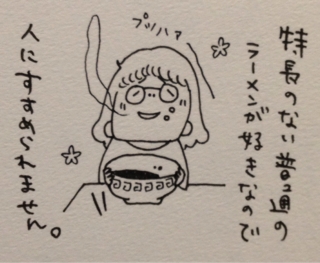 特長のない普通の
ラーメンが好きなので
プッハァ
人にすすめられません。